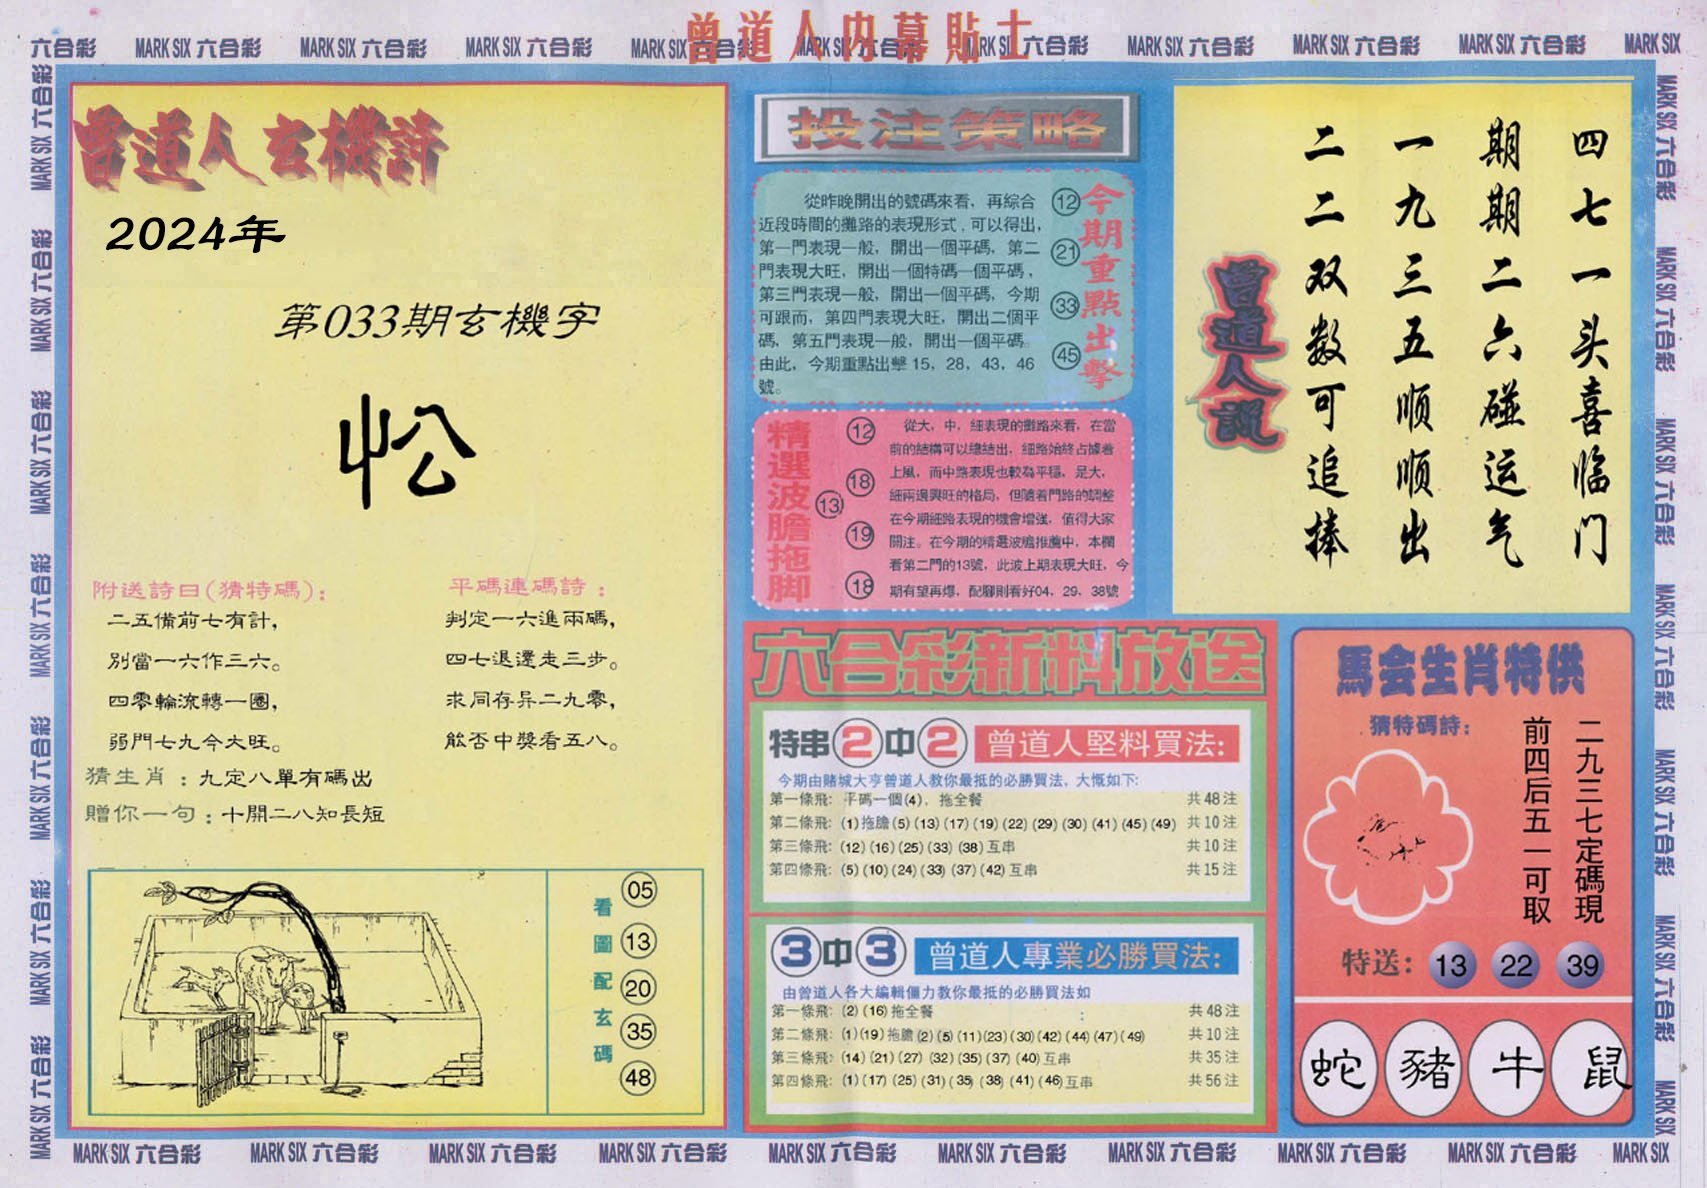 曾道人内幕貼士
六合彩 MARK SIX 六合彩 MARK SIX 六合彩 MARK SIX 六合彩 MARK SIX 六合彩 MARK SIX 六合彩 MARK SIX 六合彩 MARK SIX 六合彩 MARK SIX 六合彩 MARK SIX 六合彩 MARK SIX
曾道人玄機詩
2024年
第033期玄機字
忪
附送詩曰(猜特碼):
二五備前七有計,
別當一六作三六。
四零輪流轉一圈,
弱門七九今大旺。
平碼連碼詩:
判定一六進兩碼,
四七退還走三步。
求同存异二九零,
能否中獎看五八。
猜生肖:九定八單有碼出
贈你一句:十開二八知長短
看圖配玄碼
05
13
20
35
48
投注策略
從昨晚開出的號碼來看，再綜合
近段時間的攤路的表現形式,可以得出,
第一門表現一般，開出一個平碼，第二
門表現大旺，開出一個特碼一個平碼，
第三門表現一般，開出一個平碼，今期
可跟而，第四門表現大旺，開出二個平
碼，第五門表現一般，開出一個平碼。
由此，今期重點出擊 15，28，43，46
號。
12
21
33
45
今期重點出擊
精選波膽拖脚
12
18
13
19
18
從大，中，細表現的攤路來看，在當
前的結構可以總結出，細路始終占據着
上風，而中路表現也較為平穩，是大，
細兩邊興旺的格局，但隨着門路的調整
在今期細路表現的機會增強，值得大家
關注。在今期的精選波膽推薦中，本欄
看第二門的13號，此波上期表現大旺，今
期有望再爆，配腳則看好04，29，38號
曾道人説
四七一头喜临门
期期二六碰运气
一九三五顺顺出
二二双数可追捧
六合彩新料放送
特串2中2 曾道人堅料買法:
今期由賭城大亨曾道人教你最抵的必勝買法，大慨如下:
第一條飛: 平碼一個(4)，拖全餐 共48注
第二條飛: (1)拖膽(5)(13)(17)(19)(22)(29)(30)(41)(45)(49) 共10注
第三條飛: (12)(16)(25)(33)(38)互串 共10注
第四條飛: (5)(10)(24)(33)(37)(42)互串 共15注
3中3 曾道人專業必勝買法:
由曾道人各大編輯僵力教你最抵的必勝買法如
第一條飛: (2)(16)拖全餐 共48注
第二條飛: (1)(19)拖膽(2)(5)(11)(23)(30)(42)(44)(47)(49) 共10注
第三條飛: (14)(21)(27)(32)(35)(37)(40)互串 共35注
第四條飛: (1)(17)(25)(31)(35)(38)(41)(46)互串 共56注
馬会生肖特供
猜特碼詩:
二九三七定碼現
前四后五一可取
特送: 13 22 39
蛇 豬 牛 鼠
MARK SIX 六合彩 MARK SIX 六合彩 MARK SIX 六合彩 MARK SIX 六合彩 MARK SIX 六合彩 MARK SIX 六合彩 MARK SIX 六合彩 MARK SIX 六合彩 MARK SIX 六合彩 MARK SIX